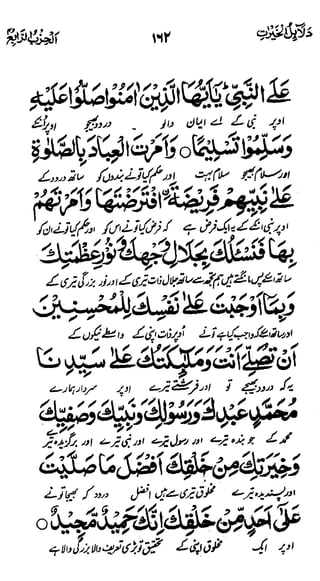 دلائل الخیرات ١٦٢ الحزب الرابع
عَلَى النَّبِيِّ يٰٓاَيُّهَا الَّذِيْنَ اٰمَنُوْا صَلُّوْا عَلَيْهِ
اوپر نبی کے اے ایمان والو درود بھیجو اوپر اُنکے
وَسَلِّمُوْا تَسْلِيْمًا ○ وَاَمَرْتَ الْعِبَادَ بِالصَّلٰوةِ
اور سلام بھیجو سلام بہت اور حکم کیا تونے بندوں کو ساتھ درود کے
عَلٰى نَبِيِّهِمْ فَرِيْضَةً اِفْتَرَضْتَهَا وَاَمَرْتَهُمْ
اوپر نبی انکے کے یہ ایک فرض ہے کہ فرض کیا تونے اس کو اور حکم کیا تونے ان کو
بِهَا فَنَسْئَلُكَ بِجَلَالِ وَجْهِكَ وَنُوْرِ عَظَمَتِكَ
ساتھ اسکے پس مانگتے ہیں ہم تجھ سے ساتھ جلال ذات تیری کے اور نور بزرگی تیری کے
وَبِمَا اَوْجَبْتَ عَلٰى نَفْسِكَ لِلْمُحْسِنِيْنَ
اور ساتھ اسکے کہ واجب کیا ہے تونے اوپر ذات اپنی کے واسطے نیکوں کے
اَنْ تُصَلِّيَ اَنْتَ وَمَلٰٓئِكَتُكَ عَلٰى سَيِّدِنَا
یہ کہ درود بھیجے تو اور فرشتے تیرے اوپر سردار ہمارے
مُحَمَّدٍ عَبْدِكَ وَرَسُوْلِكَ وَنَبِيِّكَ وَصَفِيِّكَ
محمد کے جو بندہ تیرے اور رسول تیرے اور نبی تیرے اور برگزیدہ تیرے
وَخِيَرَتِكَ مِنْ خَلْقِكَ اَفْضَلَ مَا صَلَّيْتَ
اور پسندیدہ تیرے مخلوق تیری سے ہیں افضل درود کہ بھیجا تونے
عَلٰى اَحَدٍ مِّنْ خَلْقِكَ اِنَّكَ حَمِيْدٌ مَّجِيْدٌ ○
اوپر ایک مخلوق اپنی کے تحقیق تو بڑی تعریف والا بزرگی والا ہے